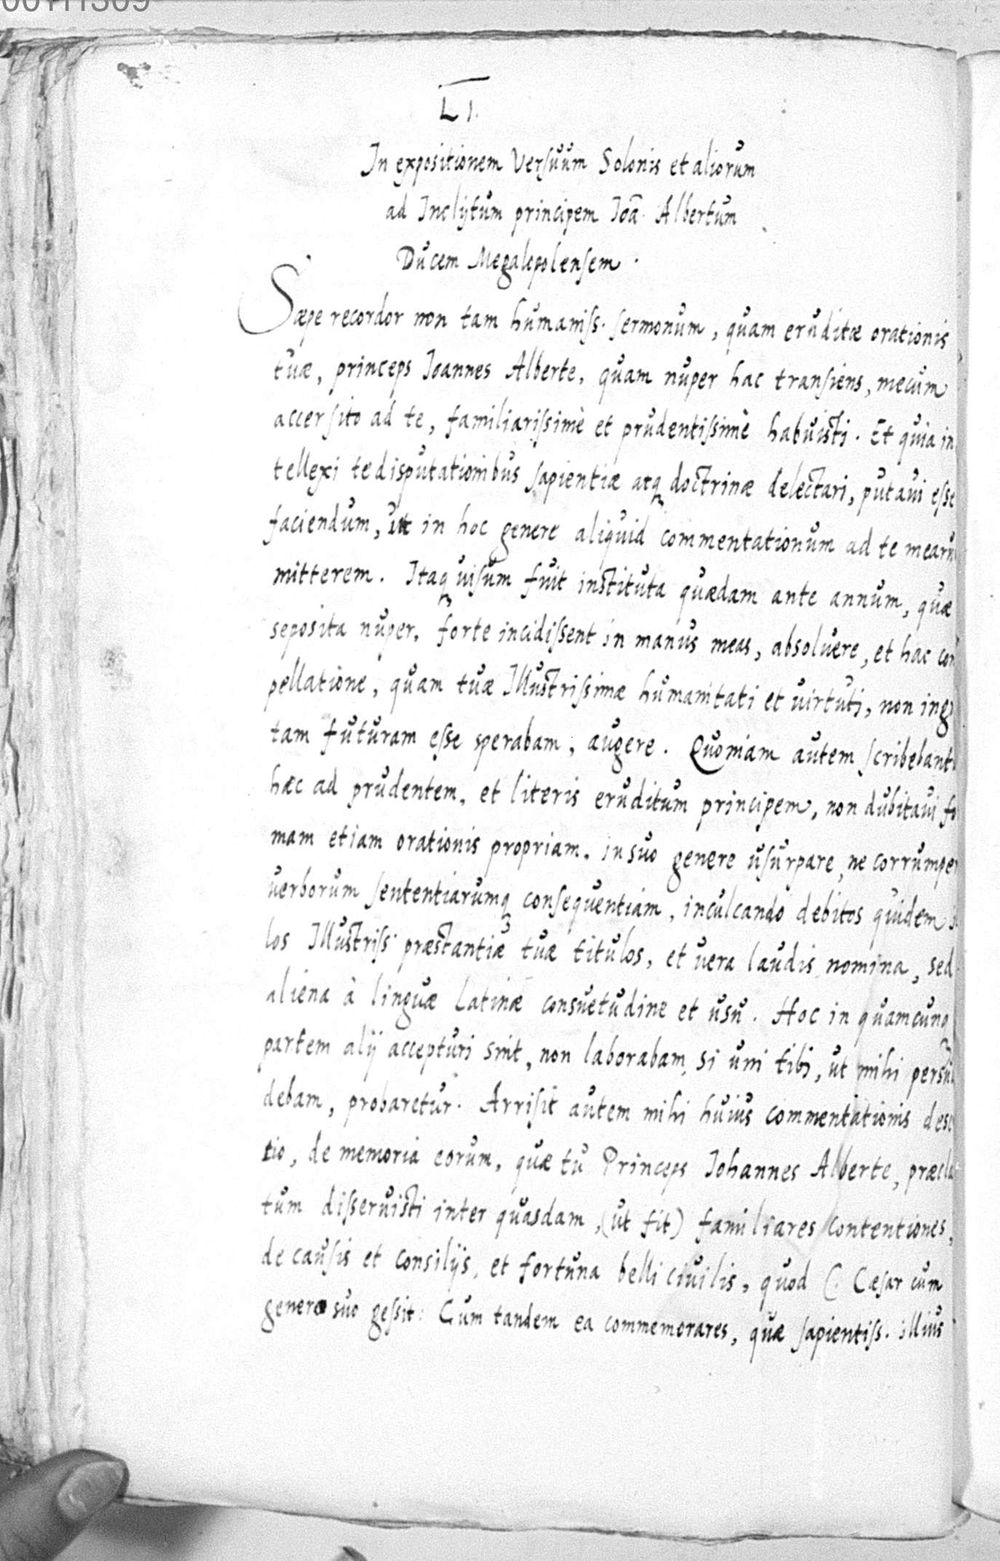 LI.
In expositionem Versuum Solonis et aliorum
ad Inclytum principem Ioā. Albertum
Ducem Megalopolensem.
Sæpe recordor non tam humaniss. sermonum, quam eruditæ orationis
tuæ, princeps Ioannes Alberte, quam nuper hac transiens, mecum
accersito ad te, familiarissimè et prudentissimè habuisti. Et quia in
tellexi te disputationibus sapientiæ atq doctrinæ delectari, putaui esse
faciendum, ut in hoc genere aliquid commentationum ad te mearu
mitterem. Itaq uisum fuit instituta quædam ante annum, quæ
seposita nuper, forte incidissent in manus meas, absoluere, et hac con
pellatione, quam tuæ Illustrissimæ humanitati et uirtuti, non ingr
tam futuram esse sperabam, augere. Quoniam autem scribebant
hæc ad prudentem, et literis eruditum principem, non dubitaui fo
mam etiam orationis propriam, in suo genere usurpare, ne corrumper
uerborum sententiarumq consequentiam, inculcando debitos quidem il
los Illustriss. præstantiæ tuæ titulos, et uera laudis nomina, sed
aliena à linguæ Latinæ consuetudine et usu. Hoc in quamcunq
partem alij accepturi sint, non laborabam, si uni tibi, ut mihi persua
debam, probaretur. Arrisit autem mihi huius commentationis desc
tio, de memoria eorum, quæ tu Princeps Iohannes Alberte, præcla
tum disseruisti inter quasdam, (ut fit) familiares contentiones,
de causis et consilijs, et fortuna belli ciuilis, quod C. Cæsar cum
genero suo gessit: Cum tandem ea commemorares, quæ sapientiss. illius